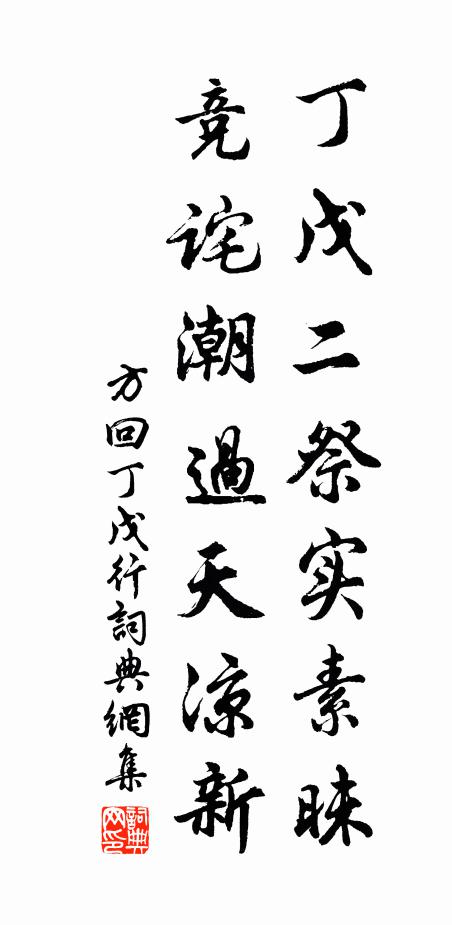 丁戊二祭实素昧
竞诧潮過天凉新
方回丁戊行詞典網集
詞典网印